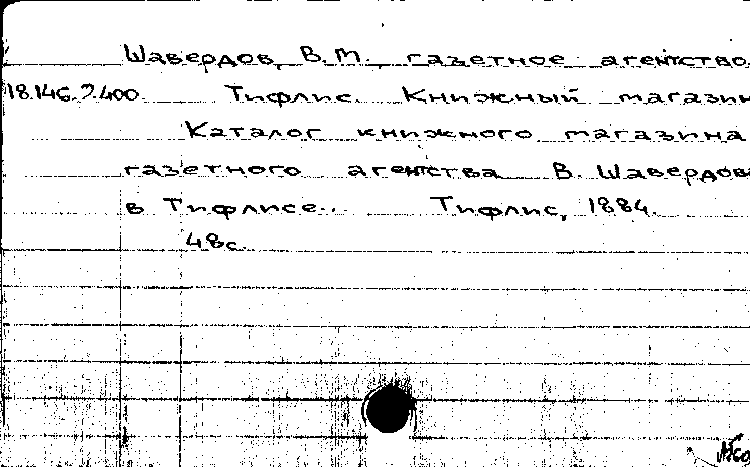 Шавердов, В.М., газетное агентство.
18.146.2.400 Тифлис. Книжный магазин
Каталог книжного магазина
газетного агентства В. Шавердова
в Тифлисе.. Тифлис, 1884.
48с.